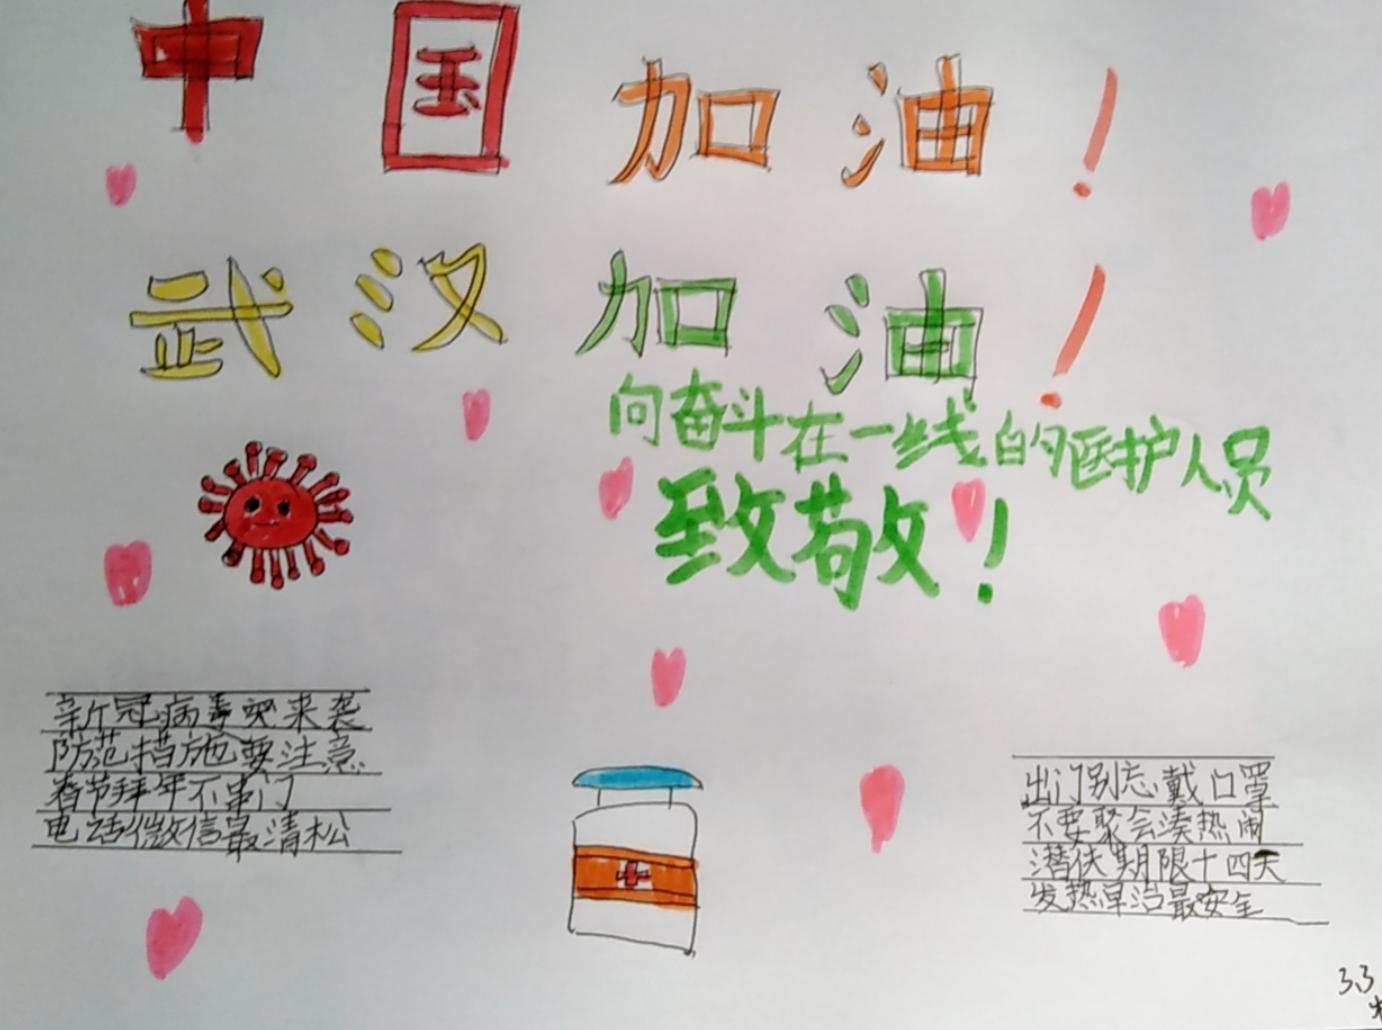 中国加油!
武汉加油!
向奋斗在一线的医护人员
致敬!
新冠病毒突来袭
防范措施要注意
春节拜年不串门
电话微信最清松
出门别忘戴口罩
不要聚会凑热闹
潜伏期限十四天
发热早治最安全
3.3